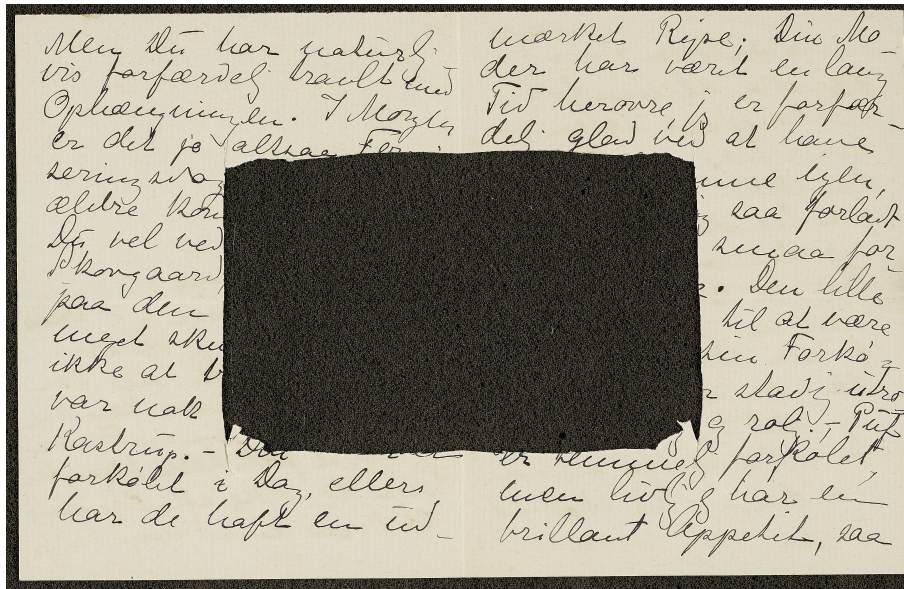 Men Du har naturlig
vis forfærdelig travlt med
Ophængningen. I Morgen
er det jo altsaa Fer
seringsdag
ældre
Du vel ved
Skovgaard,
paa den
meget
ikke at
var nok
Kastrup. –
forkølet i Dag, ellers
har de haft en ud-
mærket Rejse; Din Mo
der har været en lang
Tid herovre, jeg er forfær-
delig glad ved at have
igen,
saa forladt
smaa for
. Den lille
til at være
sin Forkø-
r stadig utro
g rolig, – Puf
er temmelig forkølet,
men livlig og har en
brillant Appetit, saa